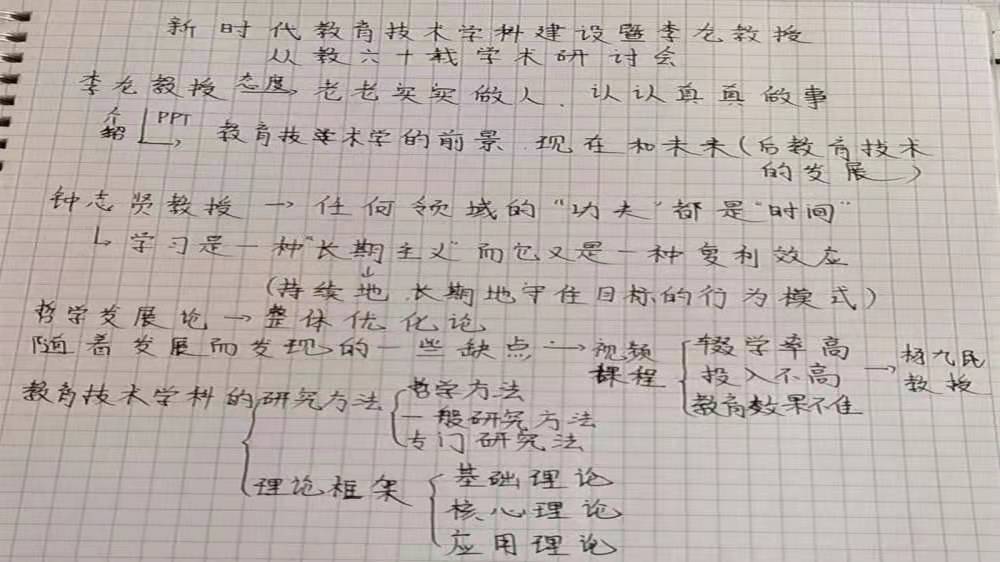 新时代教育技术学科建设暨李龙教授
从教六十载学术研讨会
李龙教授态度,老老实实做人、认认真真做事
介绍 PPT → 教育技术学的前景 现在和未来(后教育技术
的发展)
钟志贤教授 → 任何领域的“功夫”都是“时间”
↳ 学习是一种“长期主义”而它又是一种复利效应
↓
(持续地、长期地守住目标的行为模式)
哲学发展论 → 整体优化论
随着发展而发现的一些缺点 → 视频课程
辍学率高
投入不高
教育效果不佳
→ 杨九民教授
教育技术学科的研究方法
哲学方法
一般研究方法
专门研究法
理论框架
基础理论
核心理论
应用理论